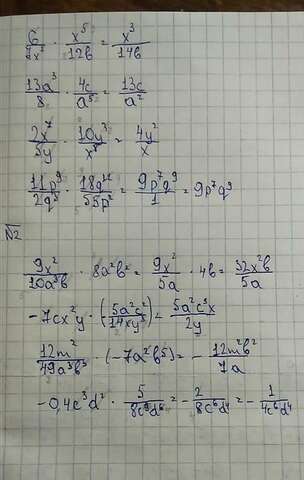 6/7x² · x⁵/12b = x³/14b
13a³/8 · 4c/a⁵ = 13c/a²
2x⁷/5y · 10y³/x⁸ = 4y²/x
11p⁹/2q³ · 18q¹²/55p² = 9p⁷q⁹/1 = 9p⁷q⁹
№2
9x²/10a³b · 8a²b² = 9x²/5a · 4b = 32x²b/5a
-7cx²y · (5a²c²/14xy²) = 5a²c³x/2y
12m²/49a³b³ · (-7a²b⁵) = - 12m²b²/7a
-0,4c³d² · 5/8c⁹d⁶ = - 2/8c⁶d⁴ = - 1/4c⁶d⁴